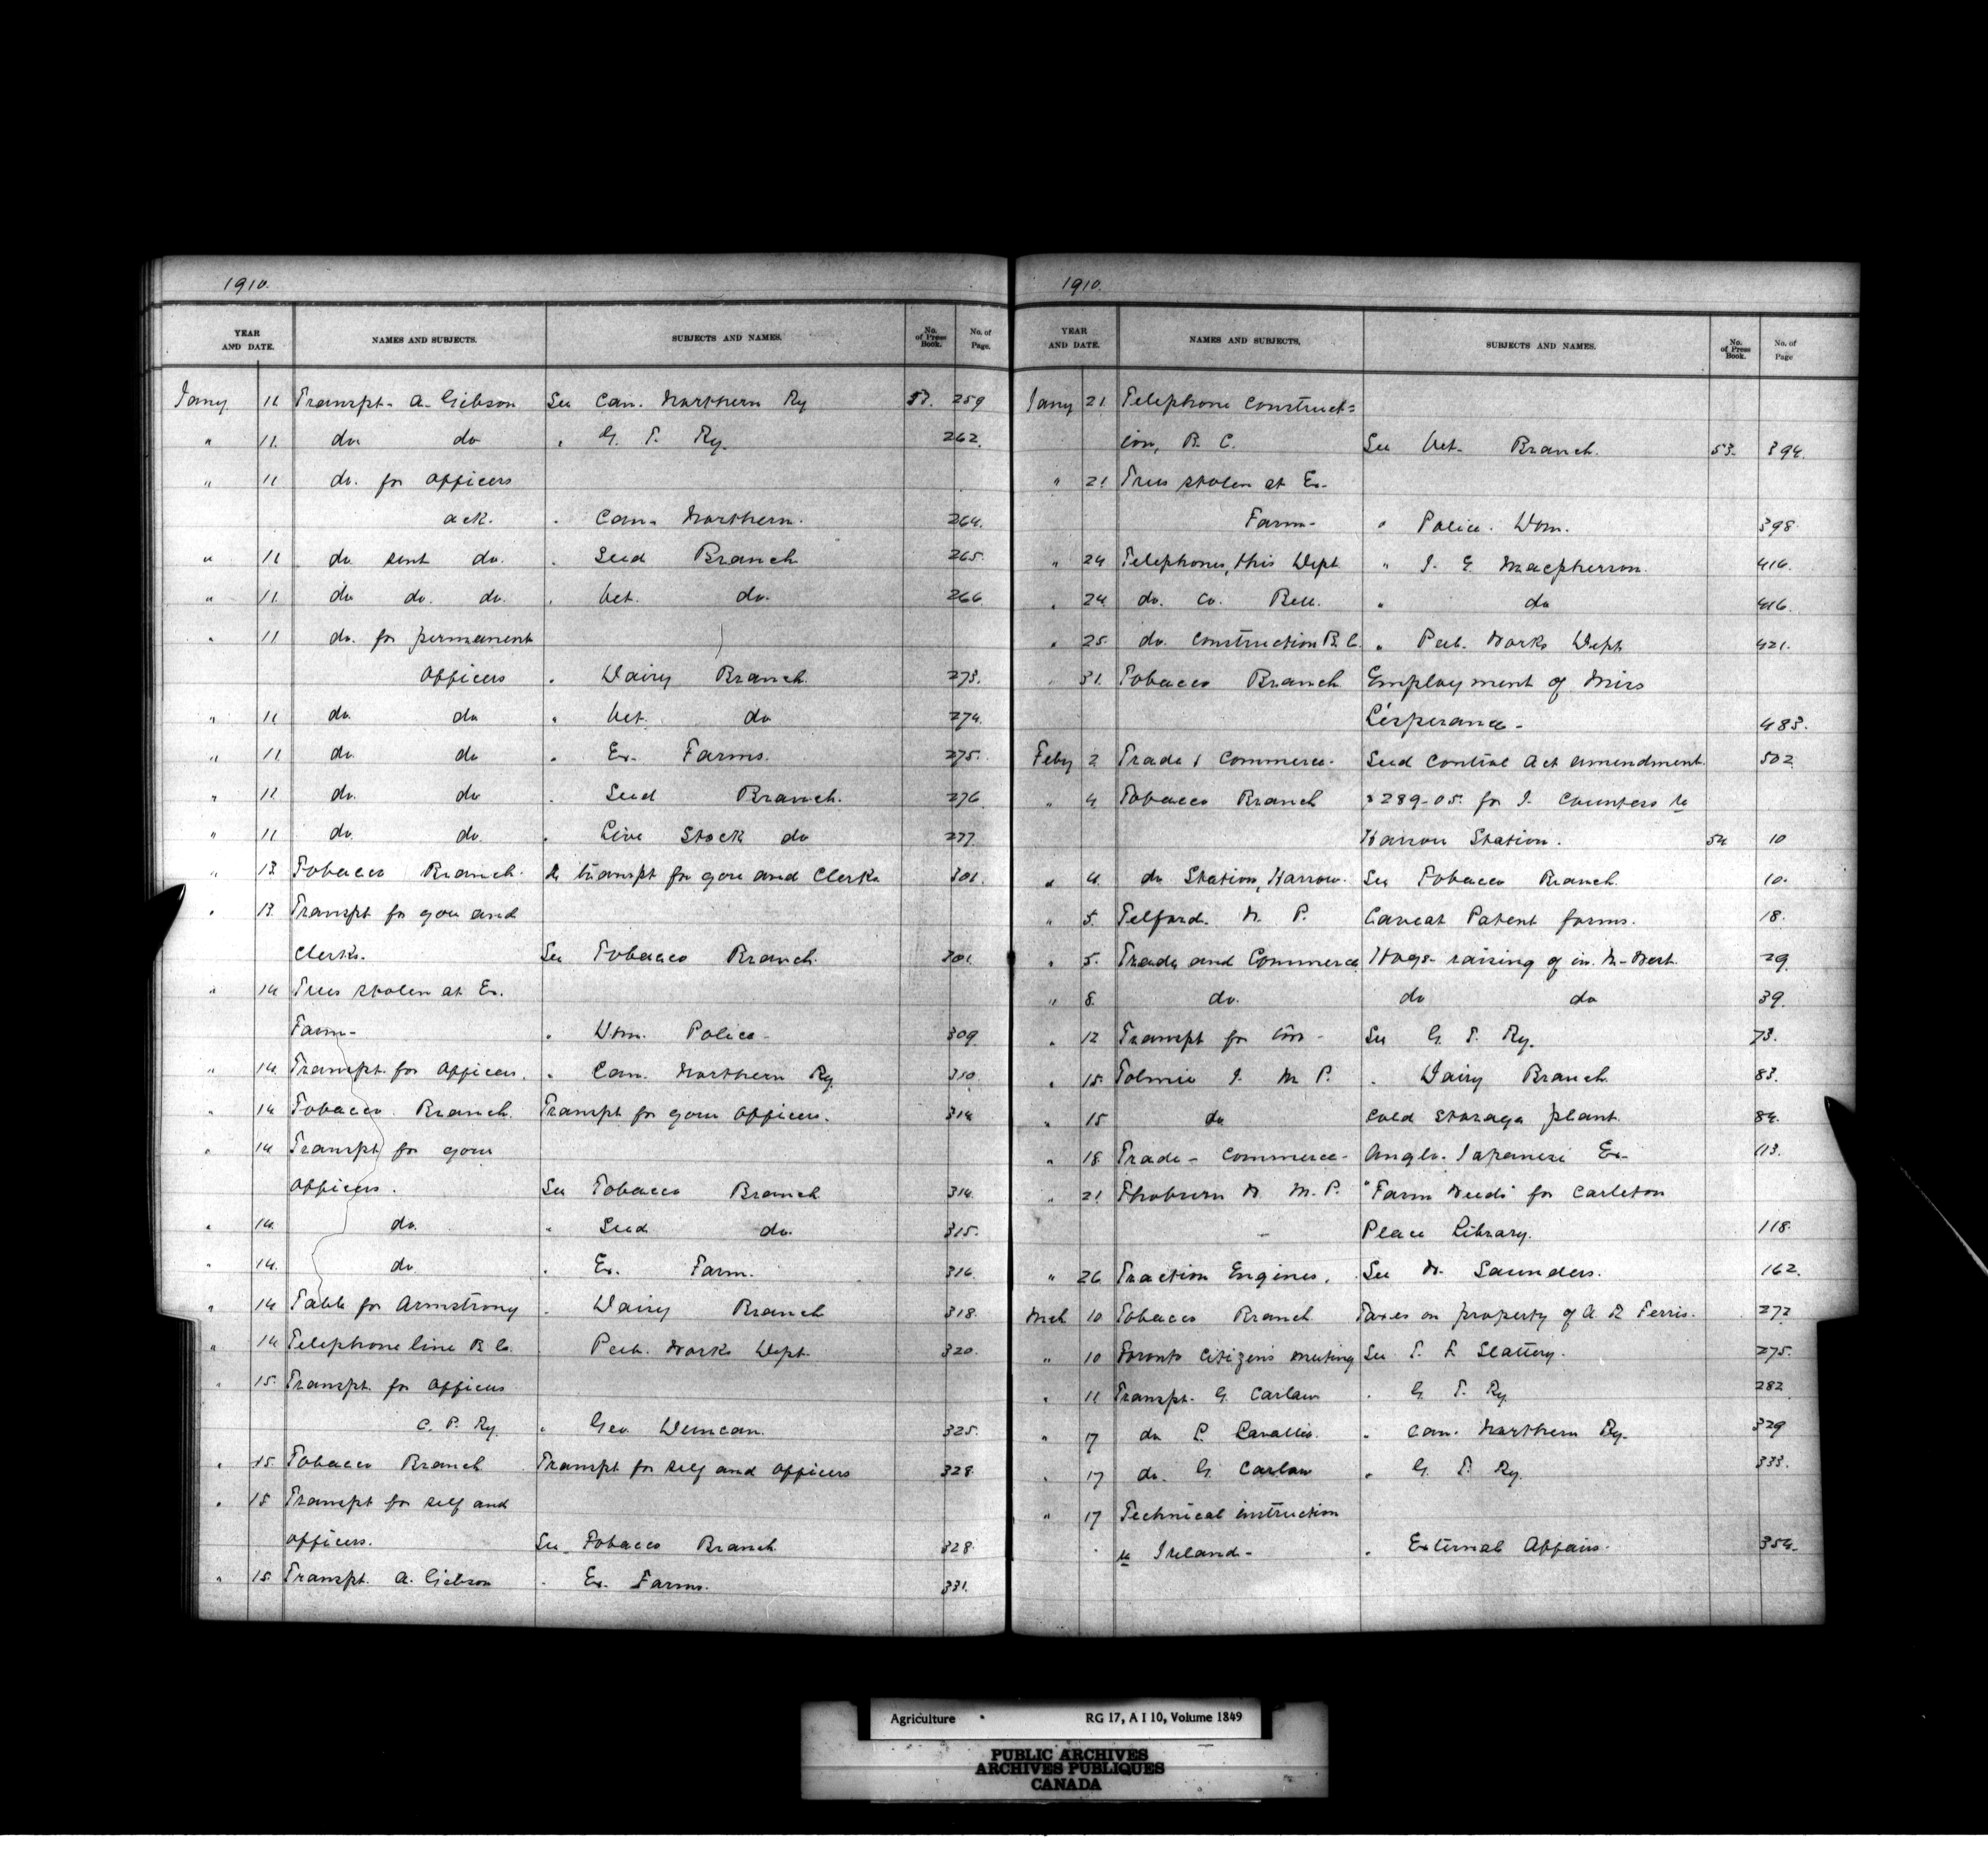 1910.
YEAR AND DATE. NAMES AND SUBJECTS. SUBJECTS AND NAMES. No. of Press Book. No. of Page.
Jany 11 Transpt. A. Gibson See Can. Northern Ry 53. 259
" 11. do. do " G. T. Ry. 262.
" 11 do. for officers
ack. " Can. Northern. 264.
" 11 do sent do. " Seed Branch 265.
" 11. do do. do. " Vet. do. 266
" 11 do. for permanent
Officers " Dairy Branch. 273.
" 11 do. do " Vet. do 274.
" 11. do. do " Ex. Farms. 275.
" 11 do. do " Seed Branch. 276
" 11 do. do. " Live Stock do 277.
" 13 Tobacco Branch. Re transpt for gou and Clerks 301.
" 13. Transpt for gou and
Clerks. See Tobacco Branch. 301.
" 14 Trees stolen at Ex.
Farm- " Dom. Police- 309
" 14. Transpt. for Officers. " Can. Northern Ry. 310.
" 14 Tobacco Branch. Transpt for your Officers. 314
" 14 Transpt for your
Officers. See Tobacco Branch 314.
" 14. do. " Seed do. 315.
" 14. do. " Ex. Farm. 316.
" 14 Table for Armstrong " Dairy Branch 318.
" 14 Telephone line B. C. " Pub. Works Dept. 320.
" 15. Transpt. for Officers
C. P. Ry. " Geo. Duncan. 325.
" 15. Tobacco Branch Transpt for self and officers 328.
" 15 Transpt for self and
officers. See Tobacco Branch. 328.
" 15 Transpt. A. Gibson " Ex. Farms. 331.
1910.
YEAR AND DATE. NAMES AND SUBJECTS. SUBJECTS AND NAMES. No. of Press Book. No. of Page
Jany 21. Telephone construct=
ion, B. C. See Vet. Branch. 53. 394.
" 21 Trees stolen at Ex-
Farm- " Police. Dom. 398.
" 24 Telephones, this Dept " J. G. Macpherson. 416.
" 24 do. Co. Bell. " do 416.
" 25. do. construction B. C. " Pub. Works Dept 421.
" 31. Tobacco Branch Employment of Miss
L'esperance- 483.
Feby 2 Trade & Commerce. Seed Control Act amendment. 502
" 4 Tobacco Branch $289-05. for J. Counters to
Harrow Station. 54 10
" 4. do Station, Harrow. See Tobacco Branch. 10.
" 5. Telford. M. P. Caveat Patent forms. 18.
" 5. Trade and Commerce Hogs- raising of in N-West. 29.
" 8. do. do do 39.
" 12 Transpt for Com- See G. T. Ry. 73.
" 15. Tolmie J. M P. " Dairy Branch 83.
" 15 do Cold storage plant. 84.
" 18. Trade- Commerce- Anglo-Japanese Ex- 113.
" 21 Thoburn W. M. P. "Farm Weeds" for Carleton
Place Library. 118.
" 26 Traction Engines. See W. Saunders. 162.
Mch 10 Tobacco Branch Taxes on property of A R Ferris. 272
" 10 Toronto citizen's meeting See T. F. Slattery. 275.
" 11 Transpt. G. Carlaw " G. T. Ry 282.
" 17 do L. Lavallee. " Can. Northern Ry. 329
" 17 do. G. Carlaw " G. T. Ry. 333.
" 17 Technical instruction
to Ireland- " External Affairs. 354.
Agriculture RG 17, A I 10, Volume 1849
PUBLIC ARCHIVES
ARCHIVES PUBLIQUES
CANADA